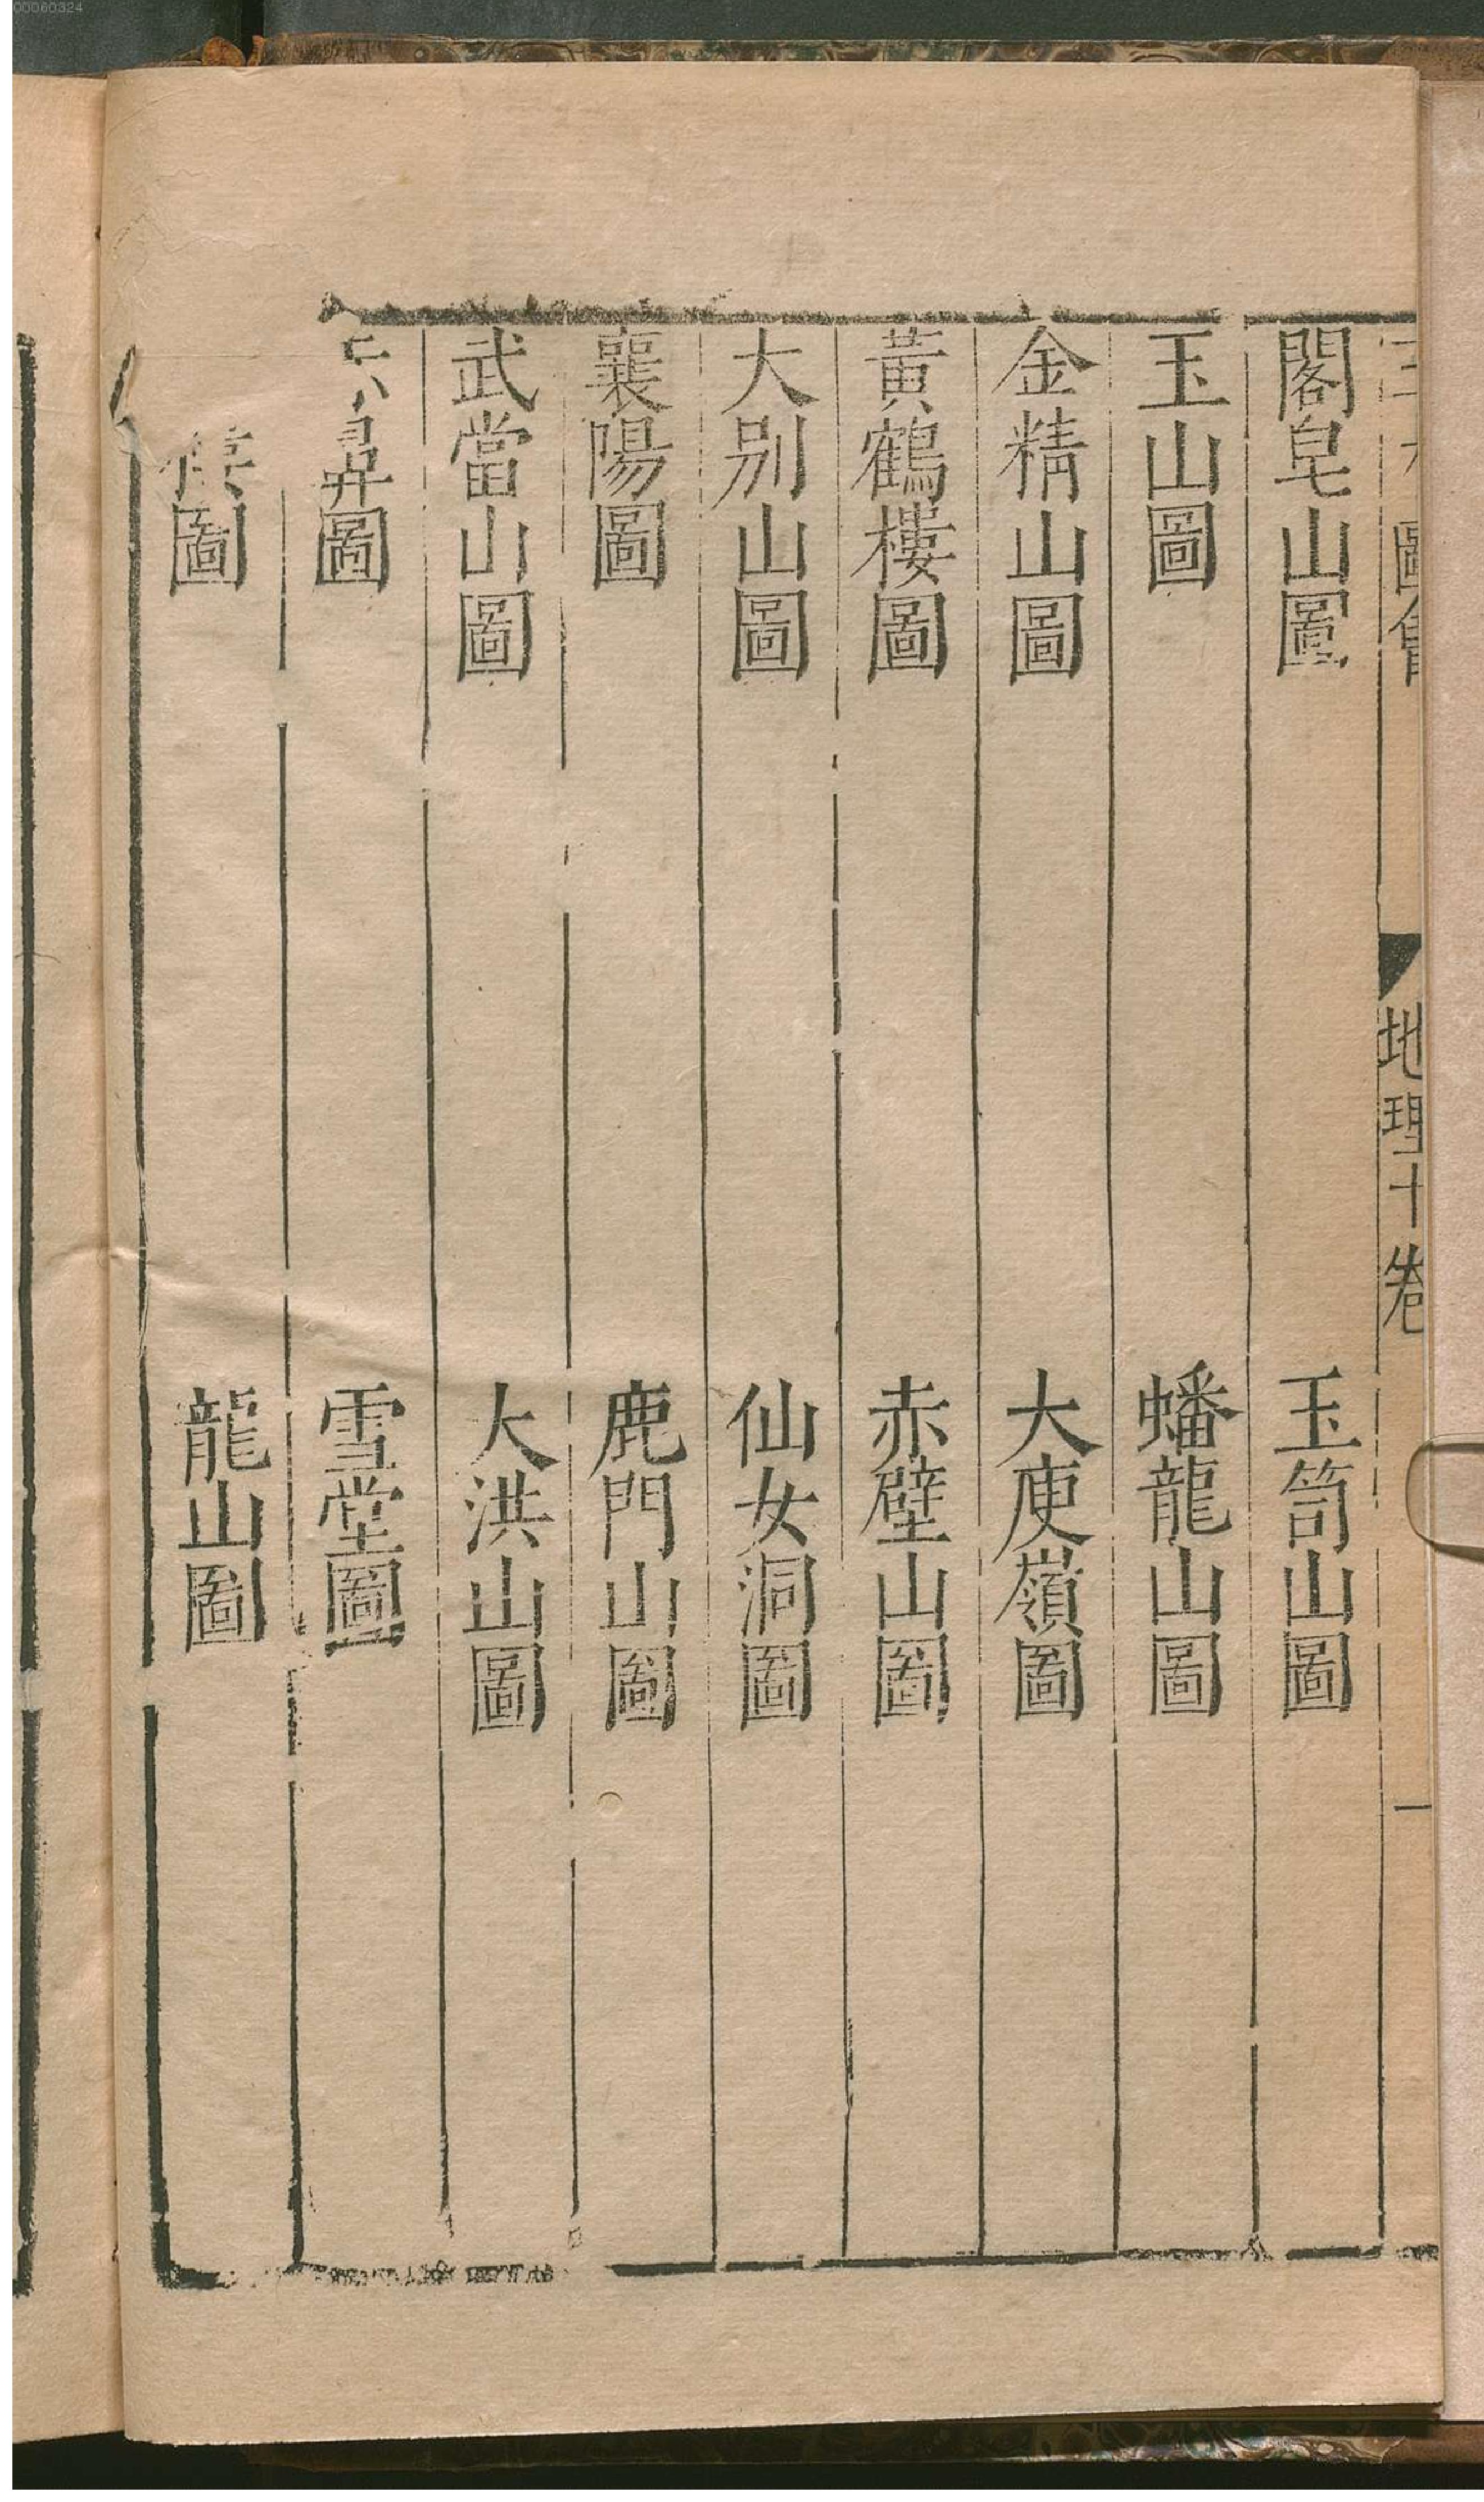 00060324
圖會 地理十卷 一
閣皂山圖 玉笥山圖
玉山圖 蟠龍山圖
金精山圖 大庾嶺圖
黃鶴樓圖 赤壁山圖
大别山圖 仙女洞圖
襄陽圖 鹿門山圖
武當山圖 大洪山圖
圖 雪堂圖
圖 龍山圖